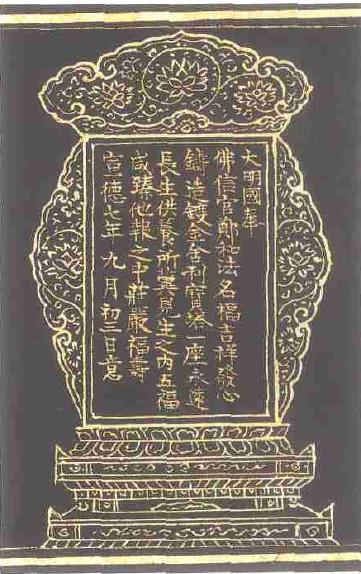 大明國奉
佛信官鄭和法名福吉祥發心
鑄造鍍金舍利寶塔一座永遠
長生供養所冀見生之內五福
咸臻他報之中莊嚴福壽
宣德七年九月初三日意